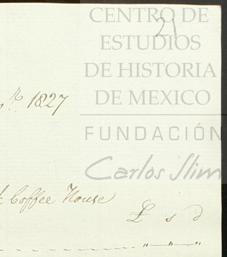 CENTRO DE
21
ESTUDIOS
DE HISTORIA
DE MEXICO
1827
FUNDACIÓN
Carlos Slim
Coffee House
£ s d